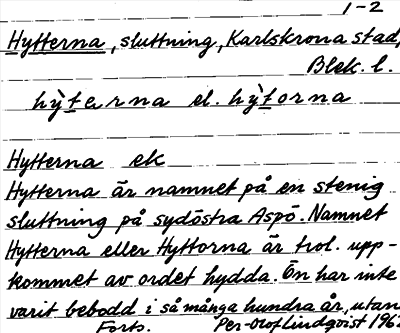 1-2
Hytterna, sluttning, Karlskrona stad,
Blek. l.
hỳterna el. hỳtorna
Hytterna ek
Hytterna är namnet på en stenig
sluttning på sydöstra Aspö. Namnet
Hytterna eller Hyttorna är trol. upp-
kommet av ordet hydda. Ön har inte
varit bebodd i så många hundra år, utan
Forts. Per-Olof Lindqvist